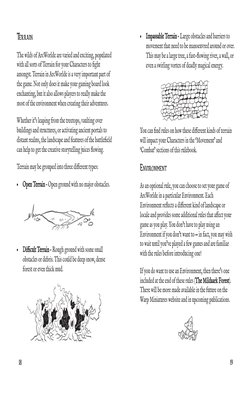 TERRAIN
The wilds of ArcWorlde are varied and exciting, populated
with all sorts of Terrain for your Characters to fight
amongst. Terrain in ArcWorlde is a very important part of
the game. Not only does it make your gaming board look
enchanting, but it also allows players to really make the
most of the environment when creating their adventures.
Whether it's leaping from the treetops, vaulting over
buildings and structures, or activating ancient portals to
distant realms, the landscape and features of the battlefield
can help to get the creative storytelling juices flowing.
Terrain may be grouped into three different types:
• Open Terrain - Open ground with no major obstacles.
• Difficult Terrain - Rough ground with some small
obstacles or debris. This could be deep snow, dense
forest or even thick mud.
18
• Impassable Terrain - Large obstacles and barriers to
movement that need to be manoeuvred around or over.
This may be a large tree, a fast-flowing river, a wall, or
even a swirling vortex of deadly magical energy.
You can find rules on how these different kinds of terrain
will impact your Characters in the "Movement" and
"Combat" sections of this rulebook.
ENVIRONMENT
As an optional rule, you can choose to set your game of
ArcWorlde in a particular Environment. Each
Environment reflects a different kind of landscape or
locale and provides some additional rules that affect your
game as you play. You don't have to play using an
Environment if you don't want to – in fact, you may wish
to wait until you've played a few games and are familiar
with the rules before introducing one!
If you do want to use an Environment, then there's one
included at the end of these rules (The Mildark Forest).
There will be more made available in the future on the
Warp Miniatures website and in upcoming publications.
19